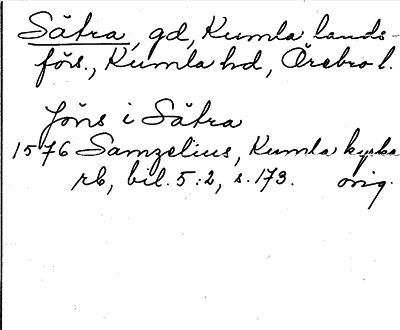 Sätra, gd, Kumla lands-
förs., Kumla hd, Örebro l.
Jöns i Sätra
1576 Samzelius, Kumla kyrka
rb, bil. 5:2, s. 173. orig.